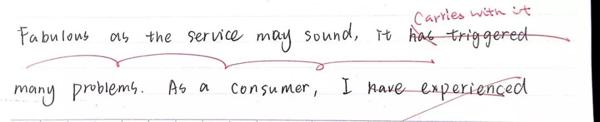 Carries with it
Fabulous as the service may sound, it has triggered
many problems. As a consumer, I have experienced